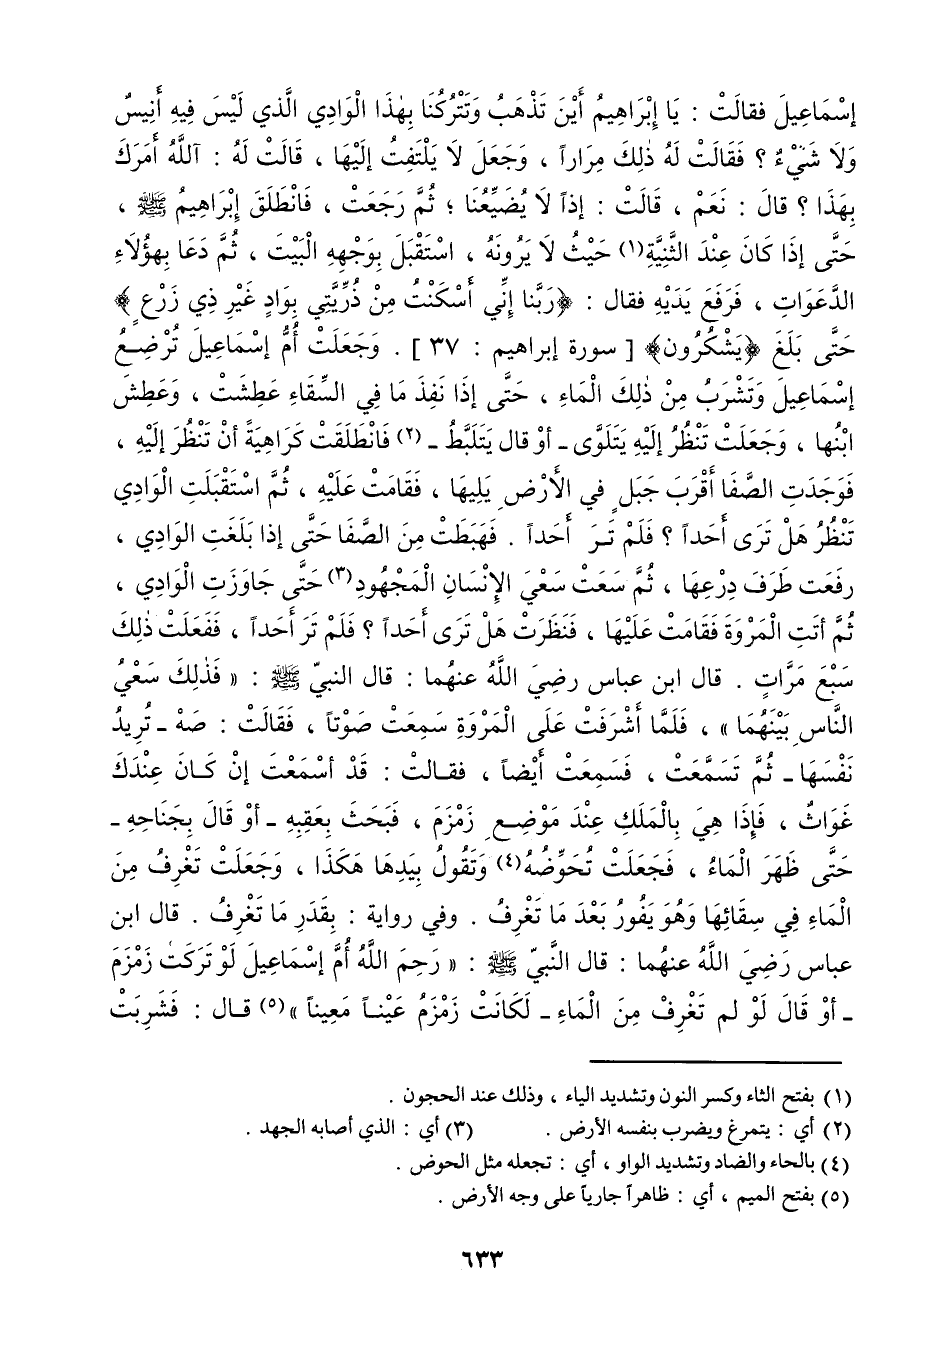 إسْمَاعِيلَ فقالَتْ : يَا إبْرَاهِيمُ أَيْنَ تَذْهَبُ وَتَتْرُكُنَا بِهٰذَا الْوَادِي الَّذي لَيْسَ فِيهِ أَنِيسٌ
وَلَا شَيْءٌ ؟ فَقَالَتْ لَهُ ذٰلِكَ مِرَاراً ، وَجَعَلَ لَا يَلْتَفِتُ إلَيْهَا ، قَالَتْ لَهُ : آللَّهُ أَمَرَكَ
بِهَذَا ؟ قالَ : نَعَمْ ، قَالَتْ : إذاً لَا يُضَيِّعُنَا ؛ ثُمَّ رَجَعَتْ ، فَانْطَلَقَ إبْرَاهِيمُ ﷺ ،
حَتَّى إذَا كَانَ عِنْدَ الثَّنِيَّةِ(١) حَيْثُ لَا يَرُونَهُ ، اسْتَقْبَلَ بِوَجْهِهِ الْبَيْتَ ، ثُمَّ دَعَا بِهؤُلَاءِ
الدَّعَوَاتِ ، فَرَفَعَ يَدَيْهِ فقال : ﴿رَبَّنا إنِّي أَسْكَنْتُ مِنْ ذُرِّيَّتِي بِوَادٍ غَيْرِ ذِي زَرْعٍ﴾
حَتَّى بَلَغَ ﴿يَشْكُرُون﴾ [ سورة إبراهيم : ٣٧ ] . وَجَعَلَتْ أُمُّ إسْمَاعيلَ تُرْضِعُ
إسْمَاعيلَ وَتَشْرَبُ مِنْ ذٰلِكَ الْمَاءِ ، حَتَّى إذَا نَفِذَ مَا فِي السِّقَاءِ عَطِشَتْ ، وَعَطِشَ
ابْنُها ، وَجَعَلَتْ تَنْظُرُ إلَيْهِ يَتَلَوَّى ـ أوْ قال يَتَلَبَّطُ ـ (٢) فَانْطَلَقَتْ كَرَاهِيَةً أنْ تَنْظُرَ إلَيْهِ ،
فَوَجَدَتِ الصَّفَا أقْرَبَ جَبَلٍ في الأَرْضِ يَلِيهَا ، فَقَامَتْ عَلَيْهِ ، ثُمَّ اسْتَقْبَلَتِ الْوَادِي
تَنْظُرُ هَلْ تَرَى أَحَداً ؟ فَلَمْ تَـرَ أَحَداً . فَهَبَطَتْ مِنَ الصَّفَا حَتَّى إذا بَلَغَتِ الوَادِي ،
رفَعَت طَرَفَ دِرْعِهَا ، ثُمَّ سَعَتْ سَعْيَ الإنْسَانِ الْمَجْهُودِ(٣) حَتَّى جَاوَزَتِ الْوَادِي ،
ثُمَّ أتَتِ الْمَرْوَةَ فَقَامَتْ عَلَيْهَا ، فَنَظَرَتْ هَلْ تَرَى أَحَداً ؟ فَلَمْ تَرَ أَحَداً ، فَفَعَلَتْ ذٰلِكَ
سَبْعَ مَرَّاتٍ . قال ابن عباس رضِيَ اللَّهُ عنهُما : قال النبيّ ﷺ : « فَذٰلِكَ سَعْيُ
النَّاسِ بَيْنَهُمَا » ، فَلَمَّا أَشْرَفَتْ عَلَى الْمَرْوَةِ سَمِعَتْ صَوْتاً ، فَقَالَتْ : صَهْ ـ تُرِيدُ
نَفْسَهَا ـ ثُمَّ تَسَمَّعَتْ ، فَسَمِعَتْ أَيْضاً ، فقـالتْ : قَدْ أسْمَعْتَ إنْ كَـانَ عِنْدَكَ
غَوَاثٌ ، فَإذَا هِيَ بِالْمَلَكِ عِنْدَ مَوْضِعِ زَمْزَمَ ، فَبَحَثَ بِعَقِبِهِ ـ أوْ قَالَ بِجَنَاحِهِ ـ
حَتَّى ظَهَرَ الْمَاءُ ، فَجَعَلَتْ تُحَوِّضُهُ(٤) وَتَقُولُ بِيَدِهَا هَكَذَا ، وَجَعَلَتْ تَغْرِفُ مِنَ
الْمَاءِ فِي سِقَائِهَا وَهُوَ يَفُورُ بَعْدَ مَا تَغْرِفُ . وفي رواية : بِقَدَرِ مَا تَغْرِفُ . قال ابن
عباس رَضِيَ اللَّهُ عنهُما : قال النَّبيّ ﷺ : « رَحِمَ اللَّهُ أُمَّ إسْمَاعِيلَ لَوْ تَرَكَتْ زَمْزَمَ
ـ أوْ قَالَ لَوْ لم تَغْرِفْ مِنَ الْمَاءِ ـ لَكَانَتْ زَمْزَمُ عَيْنـاً مَعِيناً »(٥) قـال : فَشَرِبَتْ
(١) بفتح الثاء وكسر النون وتشديد الياء ، وذلك عند الحجون .
(٢) أي : يتمرغ ويضرب بنفسه الأرض . (٣) أي : الذي أصابه الجهد .
(٤) بالحاء والضاد وتشديد الواو ، أي : تجعله مثل الحوض .
(٥) بفتح الميم ، أي : ظاهراً جارياً على وجه الأرض .
٦٣٣